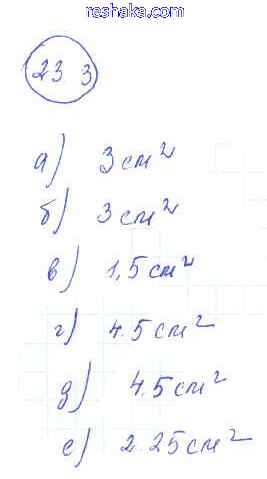 reshaka.com
23.3
а) 3 см²
б) 3 см²
в) 1,5 см²
г) 4.5 см²
д) 4.5 см²
е) 2.25 см²